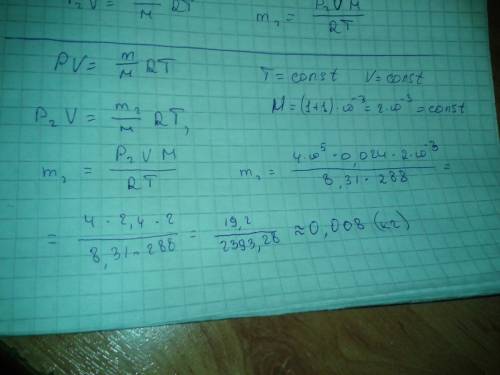 P₂V = m/M RT    m₂ = P₂VM/RT
PV = m/M RT    T = const    V = const
M = (1+1)·10⁻³ = 2·10⁻³ = const
P₂V = m₂/M RT,
m₂ = P₂VM/RT    m₂ = 4·10⁵·0,024·2·10⁻³/8,31·288 =
= 4·2,4·2/8,31·288 = 19,2/2393,28 ≈ 0,008 (кг)